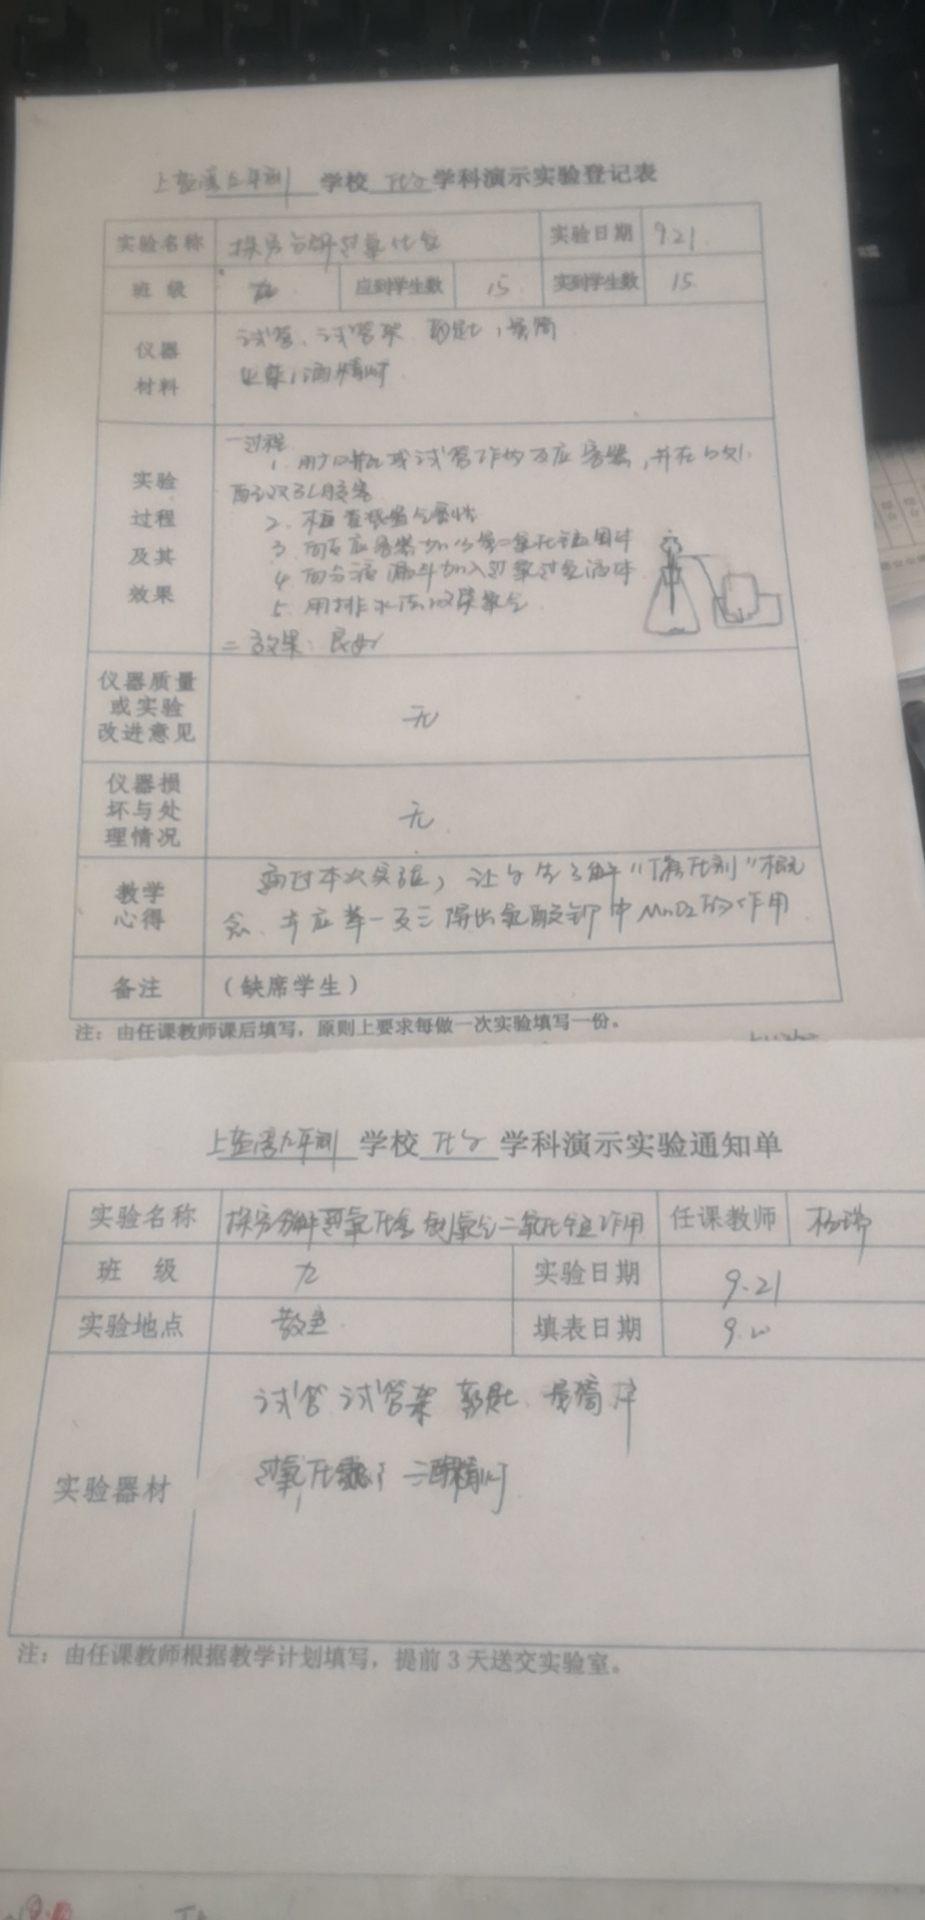 学校 化学 学科演示实验登记表
实验名称 探究分解过氧化氢 实验日期 9.21
班 级 九 应到学生数 15 实到学生数 15
仪器
材料
试管、试管架、药匙、量筒
酒精灯
实验
过程
及其
效果
一过程
1. 用 或试管作为反应容器，并在
配以双孔胶塞
2. 检查装置气密性
3. 向反应容器加少量二氧化锰固体
4. 向分液漏斗加入过氧过氢液体
5. 用排水法收集氧气
二 效果：良好
仪器质量
或实验
改进意见
无
仪器损
坏与处
理情况
无
教学
心得
通过本次实验，让学生了解“催化剂”概
念，并应举一反三得出氯酸钾中MnO2的作用
备注 （缺席学生）
注：由任课教师课后填写，原则上要求每做一次实验填写一份。
学校 化学 学科演示实验通知单
实验名称 探究分解过氧化氢制氧气二氧化锰作用 任课教师
班 级 九 实验日期 9.21
实验地点 教室 填表日期 9.
实验器材
试管 试管架 药匙 量筒
过氧化 酒精灯
注：由任课教师根据教学计划填写，提前3天送交实验室。